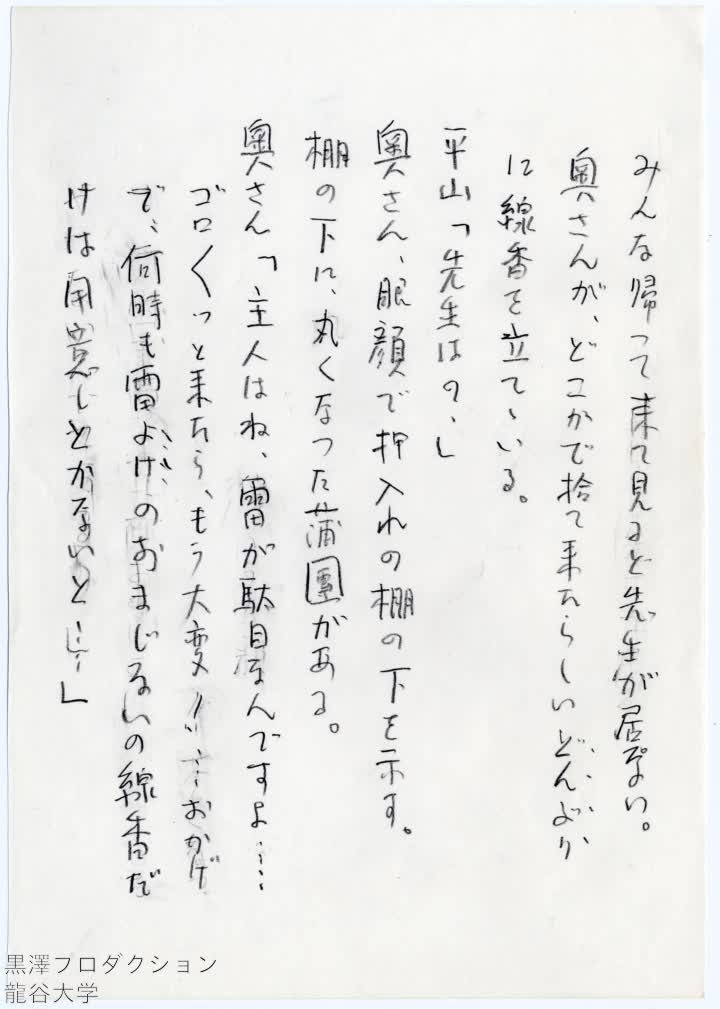 みんな帰って来て見ると先生が居ない。
奥さんが、どこかで捨て来たらしいどんぶり
に線香を立てゝいる。
平山「先生はの、」
奥さん、眼顔で押入れの棚の下を示す。
棚の下に、丸くなった蒲團がある。
奥さん「主人はね、雷が駄目なんですよ……
ゴロ〱っと来たら、もう大変!! ……おかげ
で、何時も雷よけのおまじないの線香だ
けは用意しとかないと……」
黒澤プロダクション
龍谷大学